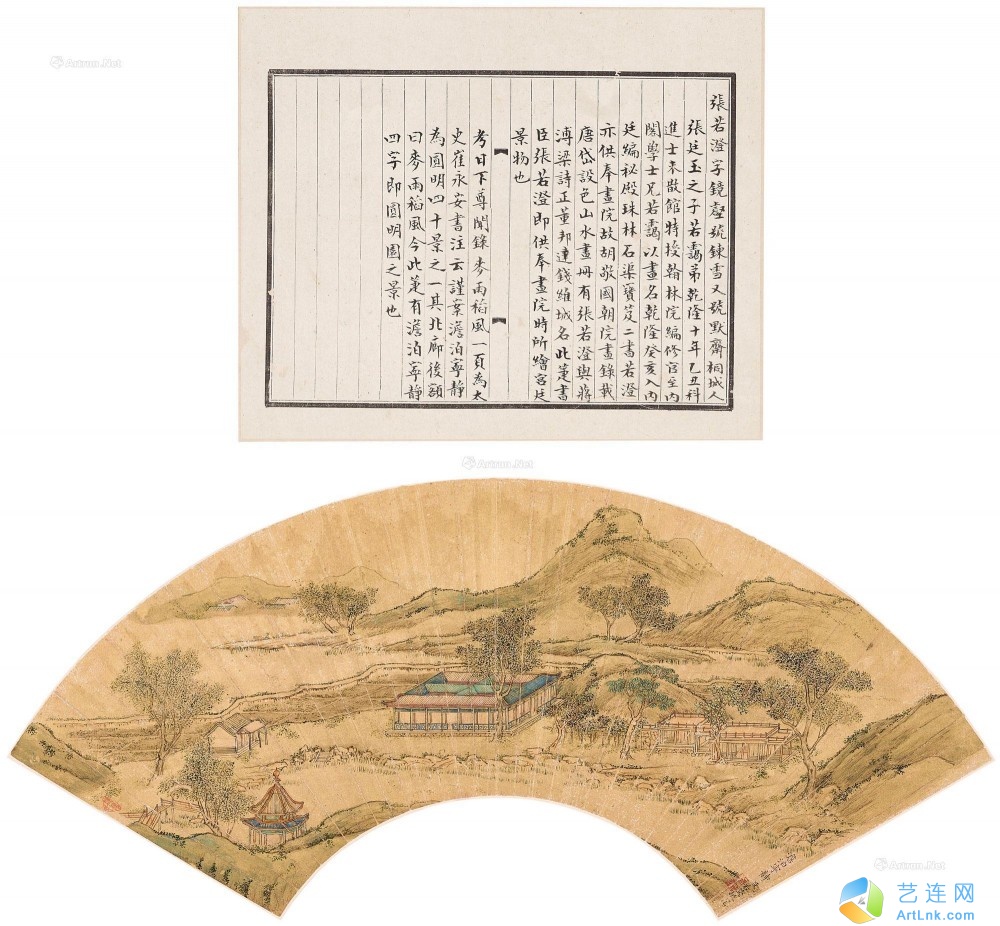 張若澄字鏡壑號鍊雪又號默齋桐城人
張廷玉之子若靄弟乾隆十年乙丑科
進士未散館特授翰林院編修官至內
閣學士兄若靄以畫名乾隆癸亥入內
廷編祕殿珠林石渠寶笈二書若澄
亦供奉畫院故胡敬國朝院畫錄載
唐岱設色山水畫冊有張若澄與蔣
溥梁詩正董邦達錢維城名此箑書
臣張若澄即供奉畫院時所繪宮廷
景物也
考日下尊聞錄麥雨稻風一頁為太
史崔永安書注云謹案澹泊寧靜
為圓明四十景之一其北廊後額
曰麥雨稻風今此箑有澹泊寧靜
四字即圓明園之景也
Artron.Net
Artron.Net
Artron.Net
艺连网
ArtLnk.com